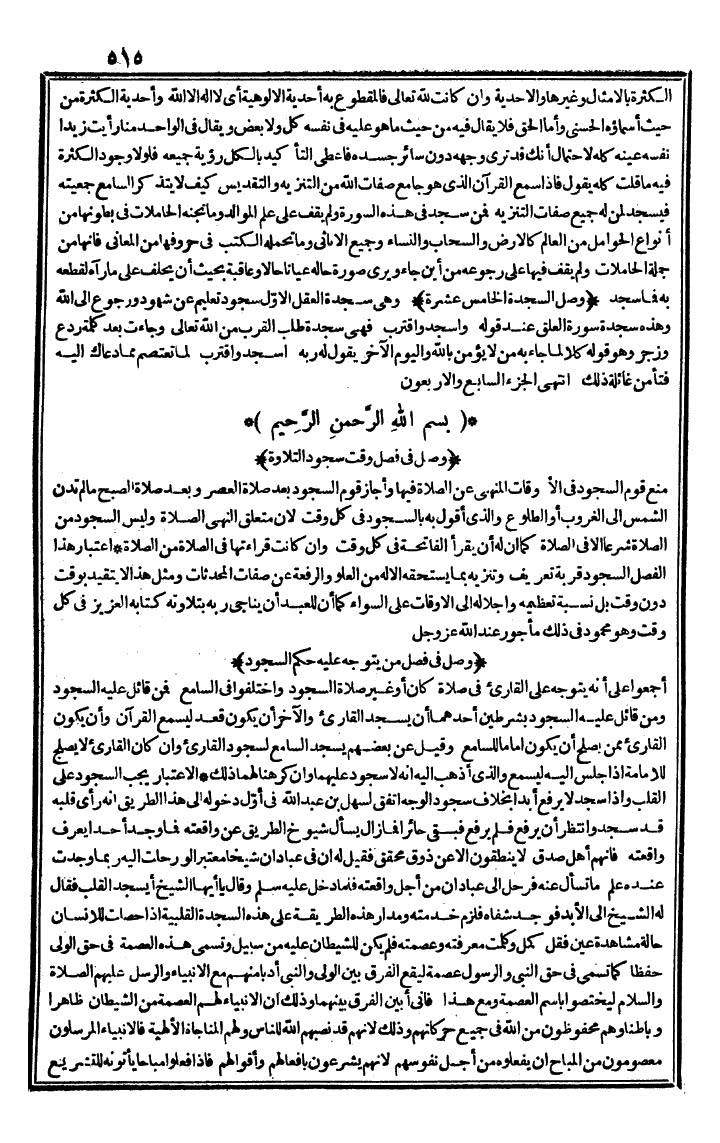 ٥١٥
الكثرة بالامثال وغيرها والاحدية وان كانت لله تعالى فالمقطوع به أحدية الالوهية أى لااله الاالله وأحدية الكثرة من
حيث أسماؤه الحسنى وأما الحق فلا يقال فيه من حيث ماهو عليه فى نفسه كل ولا بعض ويقال فى الواحد منا رأيت زيدا
نفسه عينه كله لاحتمال أنك قد ترى وجهه دون سائر جسده فاعطى التأ كيد بالكل رؤية جميعه فلولا وجود الكثرة
فيه ماقلت كله يقول فاذا سمع القرآن الذى هو جامع صفات الله من التنزيه والتقديس كيف لا يتذ كر السامع جمعيته
فيسجد لمن له جميع صفات التنزيه فمن سجد فى هذه السورة ولم يقف على علم الموالد وماتجنه الحاملات فى بطونها من
أنواع الحوامل من العالم كالارض والسحاب والنساء وجميع الاماثى وماتحمله الكتب فى حروفها من المعانى فانها من
جملة الحاملات ولم يقف فيها على رجوعه من أين جاء ويرى صورة حاله عيانا حالا وعاقبة بحيث أن يحلف على مارآه لقطعه
به فما سجد ﴿وصل السجدة الخامس عشرة﴾ وهى سجدة العقل الاوّل سجود تعليم عن شهود ورجوع الى الله
وهذه سجدة سورة العلق عند قوله واسجد واقترب فهى سجدة طلب القرب من الله تعالى وجاءت بعد كلمة ردع
وزجر وهو قوله كلا لما جاء به من لا يؤمن بالله واليوم الآخر يقول له ربه اسجد واقترب لما تعتصم مما دعاك اليه
فتأمن غائلة ذلك انتهى الجزء السابع والاربعون
*( بسم الله الرَّحمنِ الرَّحِيم )*
﴿وصل فى فصل وقت سجود التلاوة﴾
منع قوم السجود فى الأ وقات المنهى عن الصلاة فيها وأجاز قوم السجود بعد صلاة العصر وبعد صلاة الصبح مالم تدن
الشمس الى الغروب أو الطلوع والذى أقول به بالسجود فى كل وقت لان متعلق النهى الصلاة وليس السجود من
الصلاة شرعا الافى الصلاة كما ان له أن يقرأ الفاتحة فى كل وقت وان كانت قراءتها فى الصلاة من الصلاة * اعتبار هذا
الفصل السجود قربة تعريف وتنزيه بما يستحقه الاله من العلو والرفعة عن صفات المحدثات ومثل هذا لا يتقيد بوقت
دون وقت بل نسبة تعظيمه واجلاله الى الاوقات على السواء كما أن للعبد أن يناجى ربه بتلاوته كتابه العزيز فى كل
وقت وهو محمود فى ذلك مأجور عند الله عز وجل
﴿وصل فى فصل من يتوجه عليه حكم السجود﴾
أجمعوا على أنه يتوجه على القارئ فى صلاة كان أو غير صلاة السجود واختلفوا فى السامع فمن قائل عليه السجود
ومن قائل عليه السجود بشرطين أحدهما أن يسجد القارئ والآخر أن يكون قعد ليسمع القرآن وأن يكون
القارئ ممن يصلح أن يكون اماما للسامع وقيل عن بعضهم يسجد السامع لسجود القارئ وان كان القارئ لا يصلح
للامامة اذا جلس اليه ليسمع والذى أذهب اليه انه لا سجود عليهما وان كرهنا لهما ذلك * الاعتبار يجب السجود على
القلب واذا سجد لا يرفع أبدا بخلاف سجود الوجه اتفق لسهل بن عبد الله فى أوّل دخوله الى هذا الطريق انه رأى قلبه
قد سجد وانتظر أن يرفع فلم يرفع فبقى حائرا فما زال يسأل شيوخ الطريق عن واقعته فما وجد أحدا يعرف
واقعته فانهم أهل صدق لا ينطقون الا عن ذوق محقق فقيل له ان فى عبادان شيخا معتبر الو رحلت اليه ربما وجدت
عنده علم ماتسأل عنه فرحل الى عبادان من أجل واقعته فلما دخل عليه سلم وقال يا أيها الشيخ أيسجد القلب فقال
له الشيخ الى الأبد فوجد شفاه فلزم خدمته ومدار هذه الطريقة على هذه السجدة القلبية اذا حصلت للانسان
حالة مشاهدة عين فقد كمل وكملت معرفته وعصمته فلم يكن للشيطان عليه من سبيل وتسمى هذه العصمة فى حق الولى
حفظا كما تسمى فى حق النبى والرسول عصمة ليقع الفرق بين الولى والنبى أدبا منهم مع الانبياء والرسل عليهم الصلاة
والسلام ليختصوا باسم العصمة ومع هذا فانى أبين الفرق بينهما وذلك ان الانبياء لهم العصمة من الشيطان ظاهرا
وباطنا وهم محفوظون من الله فى جميع حركاتهم وذلك لانهم قد نصبهم الله للناس ولهم المناجاة الالهية فالانبياء المرسلون
معصومون من المباح ان يفعلوه من أجل نفوسهم لانهم يشرعون بافعالهم وأقوالهم فاذا فعلوا مباحا يأتونه للتشريع